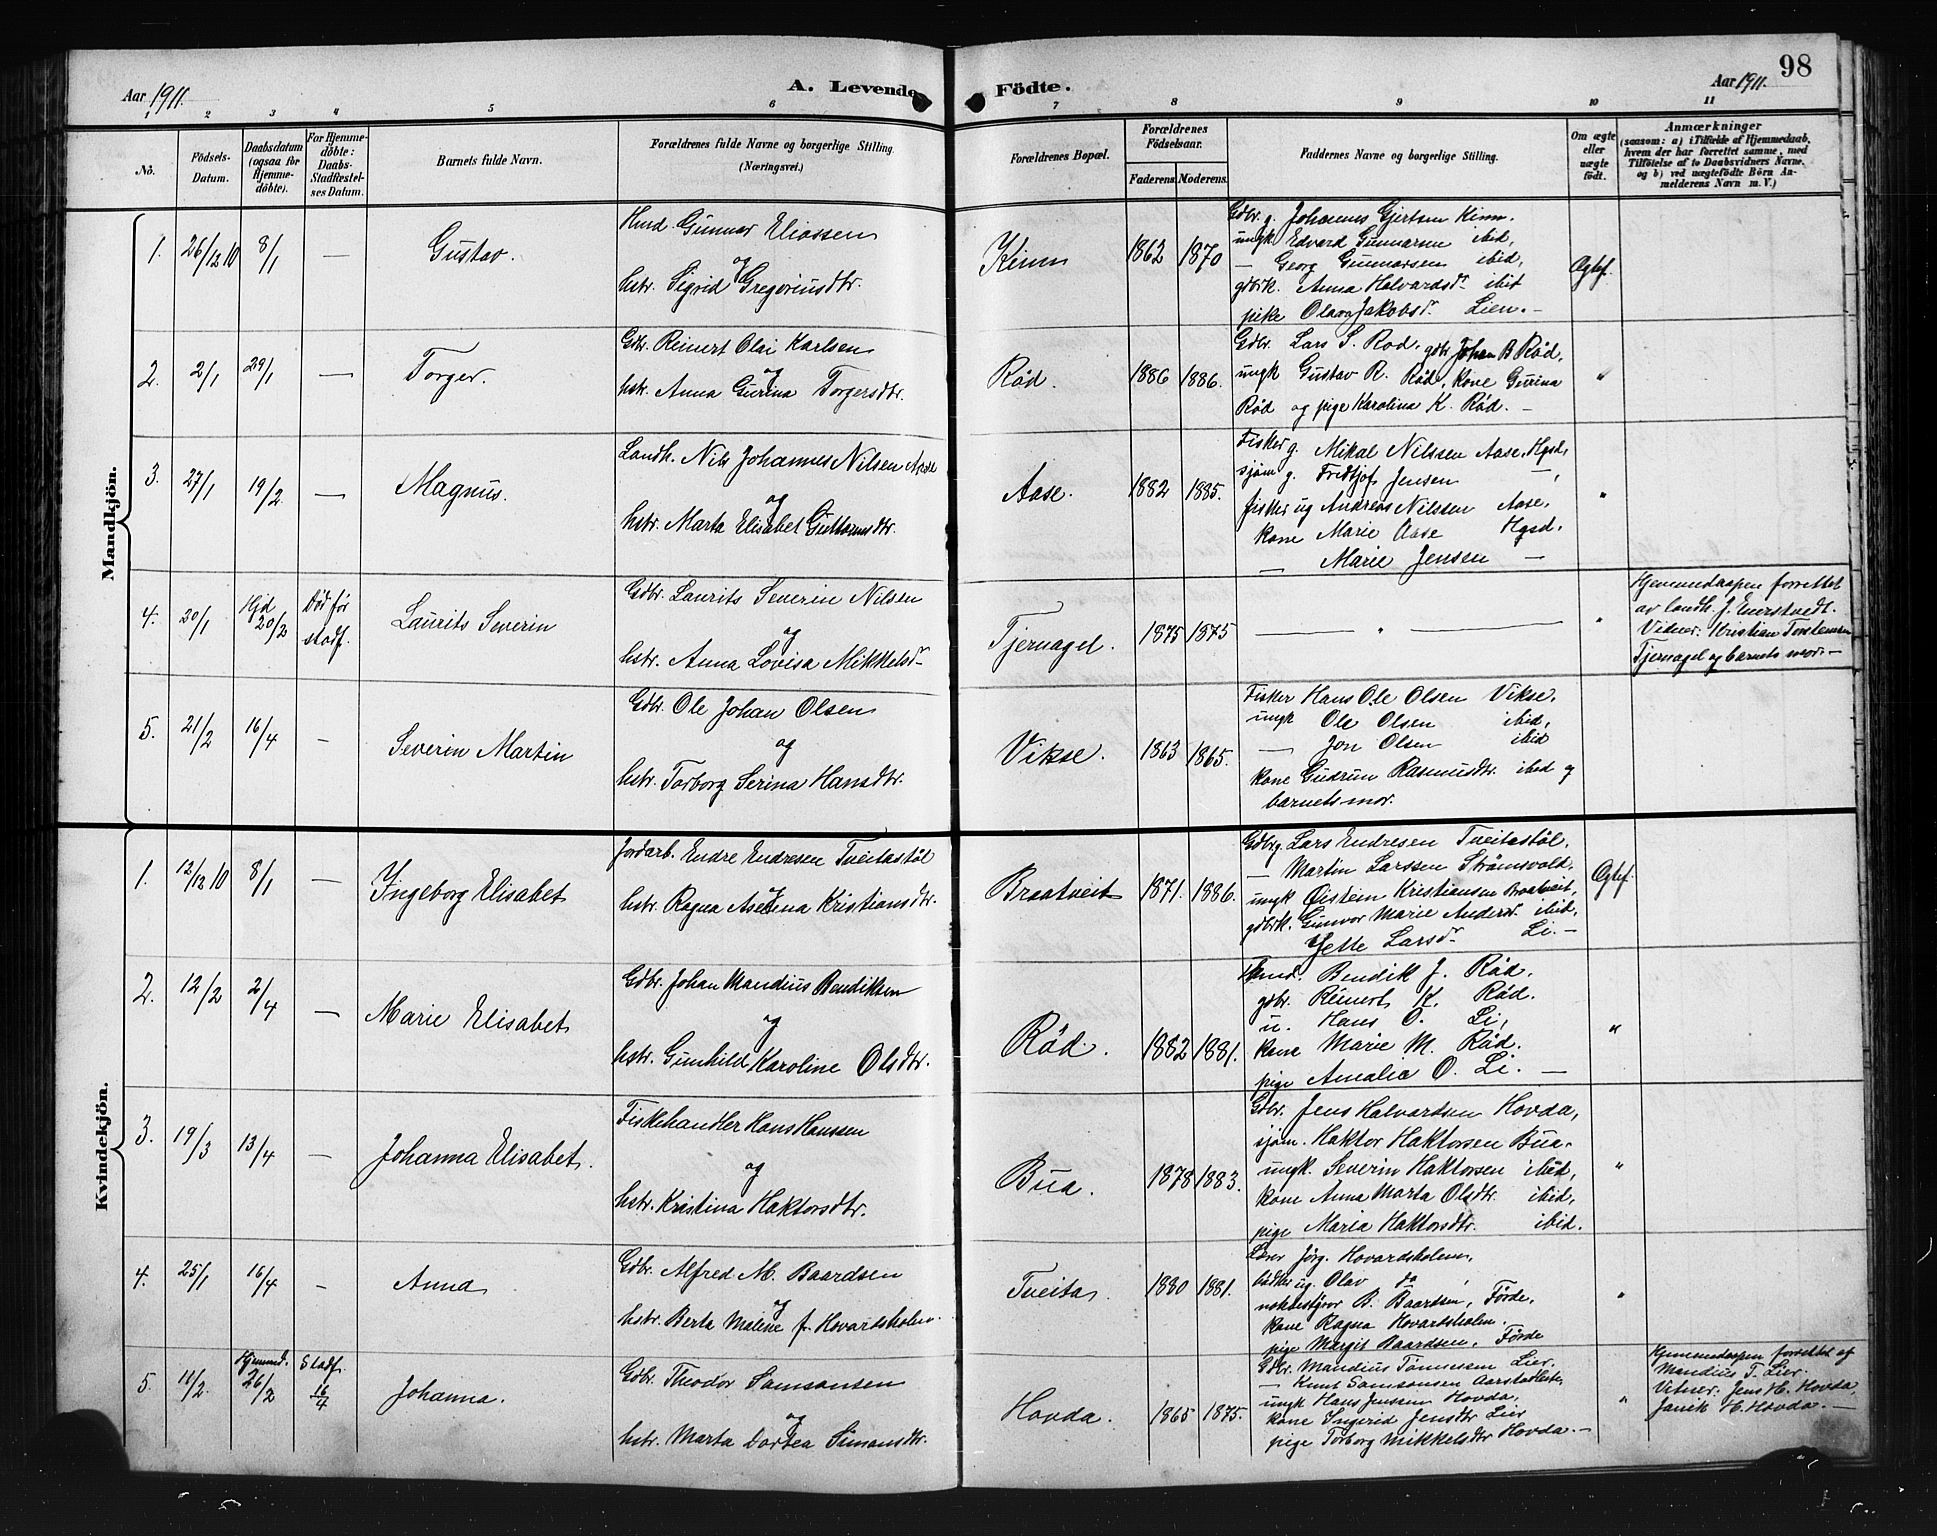 Aar 1911.
A. Levende
Födte.
Aar 1911.
98
1 2 3 4 5 6 7 8 9 10 11
No.
Födsels-Datum.
Daabsdatum (ogsaa for Hjemme-döbte).
For Hjemme-döbte: Daabs-Stadfæstel-ses Datum.
Barnets fulde Navn.
Forældrenes fulde Navne og borgerlige Stilling. (Næringsvei.)
Forældrenes Bopæl.
Forældrenes Födselsaar.
Faderens. Moderens.
Faddernes Navne og borgerlige Stilling.
Om ægte eller uægte födt.
Anmærkninger
(saasom: a) i Tilfælde af Hjemmedaab, hvem der har forrettet samme, med Tilföielse af to Daabsvidners Navne, og b) ved uægtefödte Börn An-melderens Navn m. V.)
Mandkjön.
1. 26/12 10 8/1 — Gustav.
Kmd. Gunnar Eliassen
og
hstr. Sigrid Gregoriusdtr.
Kinn 1862 1870
Gdbr. g. Johannes Gjertsen Kinn.
ungk. Edvard Gunnarsen ibid,
— Georg Gunnarsen ibid,
gdbrk. Anna Halvardsdr ibid
pike Olava Jakobsdr Lien. —
Ægtef.
2. 2/1 29/1 — Torger.
Gdbr. Reinert Olai Karlsen
og
hstr. Anna Gurina Torgersdtr.
Rød. 1886 1886.
Gdbr. Lars S. Rod, gdbr Johan B Rød,
ungk Gustav R. Rød, kone Gurina
Rød og pige Karolina K. Rød. —
"
3. 27/1 19/2 — Magnus.
Landh. Nils Johannes Nilsen Aase
og
hstr. Marta Elisabet Guttormsdtr.
Aase. 1882 1885.
Fisker g. Mikal Nilssen Aase, Hgsd,
sjøm g. Fridtjof Jensen —,
fisker ug Andreas Nilsen Aase,
kone Marie Aase Hgsd.
— Marie Jenssen —
"
4. 20/1 Hjd 20/2 Død før stadf. Laurits Severin
Gdbr. Laurits Severin Nilsen
og
hstr. Anna Lovisa Mikkelsdr
Tjernagel. 1875 1875 — " —
"
Hjemmedaapen forrettet
av landh. J. Enerstvedt.
Vidner: Kristian Torstensen
Tjernagel og barnets mor. —
5. 21/2 16/4 — Severin Martin
Gdbr. Ole Johan Olsen
og
hstr. Torborg Serina Hansdtr.
Vikse. 1863 1865.
Fisker Hans Ole Olsen Vikse,
ungk Ole Olsen ibid,
— Jon Olsen ibid
kone Gudrun Rasmusdtr. ibid og
barnets mor.
Kvindekjön.
1. 12/12 10 8/1 — Ingeborg Elisabet
Jordarb. Endre Endresen Tveitastøl
og
hstr. Ragna Aselena Kristiansdtr.
Braatveit 1871. 1886.
Gdbrg. Lars Endresen Tveitastøl.
— Martin Larssen Strømsvold,
ungk Øistein Kristiansen Braatveit,
gdbrk. Gunvor Marie Andersdr ibid,
Jette Larsdr Li. —
Ægtef.
2. 12/2 2/4 — Marie Elisabet
Gdbr. Johan Mandius Bendiksen
og
hstr. Gunhild Karoline Olsdtr.
Rød. 1882 1881.
Kmd. Bendik J. Rød,
gdbr. Reinert K. Rød.
u. Hans O. Li,
kone Marie M. Rød.
pige Amalie O. Li. —
"
3. 19/3 13/4 — Johanna Elisabet.
Fiskehandler Hans Hanssen
og
hstr. Kristina Haktorsdtr.
Bua. 1878 1883.
Gdbr. Jens Halvardsen Hovda,
sjøm. Haktor Haktorsen Bua.
ungk. Severin Haktorsen ibid,
kone Anna Marta Olsdtr. ibid,
pige Maria Haktorsdtr. ibid.
"
4. 25/1 16/4 — Anna
Gdbr. Alfred M. Baardsen
og
hstr. Berta Maline f. Hovardsholm.
Tveita. 1880 1881.
Jörg. Hovardsholm,
ug. Olav do,
B. Baardsen, Førde,
kone Ragna Hovardsholm.
pige Margit Baardsen, Førde
"
5. 11/2. Hjemmed. 26/2 Stadf. 16/4 Johanna.
Gdbr. Theodor Samsonsen
og
hstr. Marta Dortea Simonsdtr.
Hovda. 1865 1875.
Gdbr. Mandius Tønnesen Lier,
— Knut Samsonsen
ungk Hans Jenssen Hovda,
kone Ingerid Jensdtr Lier
pige Torborg Mikkelsdtr Hovda. —
"
Hjemmedaapen forrettet af
Mandius T. Lier.
Vitner: Jens H. Hovda,
Janik H. Hovda. —